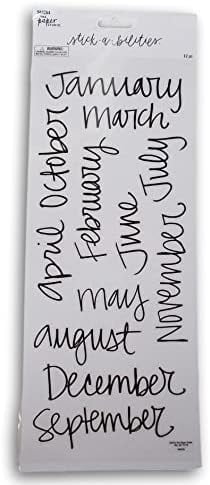 the paper studio
stick·a·bilities
12 pc
January
March
April
October
February
June
July
November
may
august
December
September